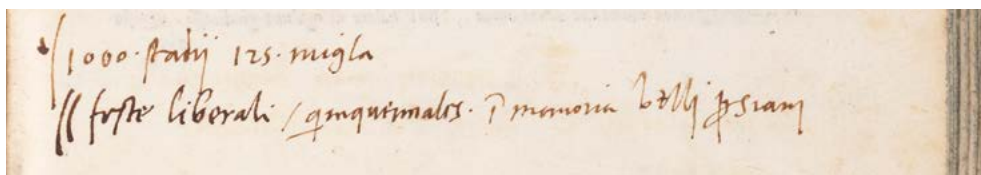 1000 · stadij 125 · migla
feste liberali / quinquennales · ī memoria belli ꝑsiani